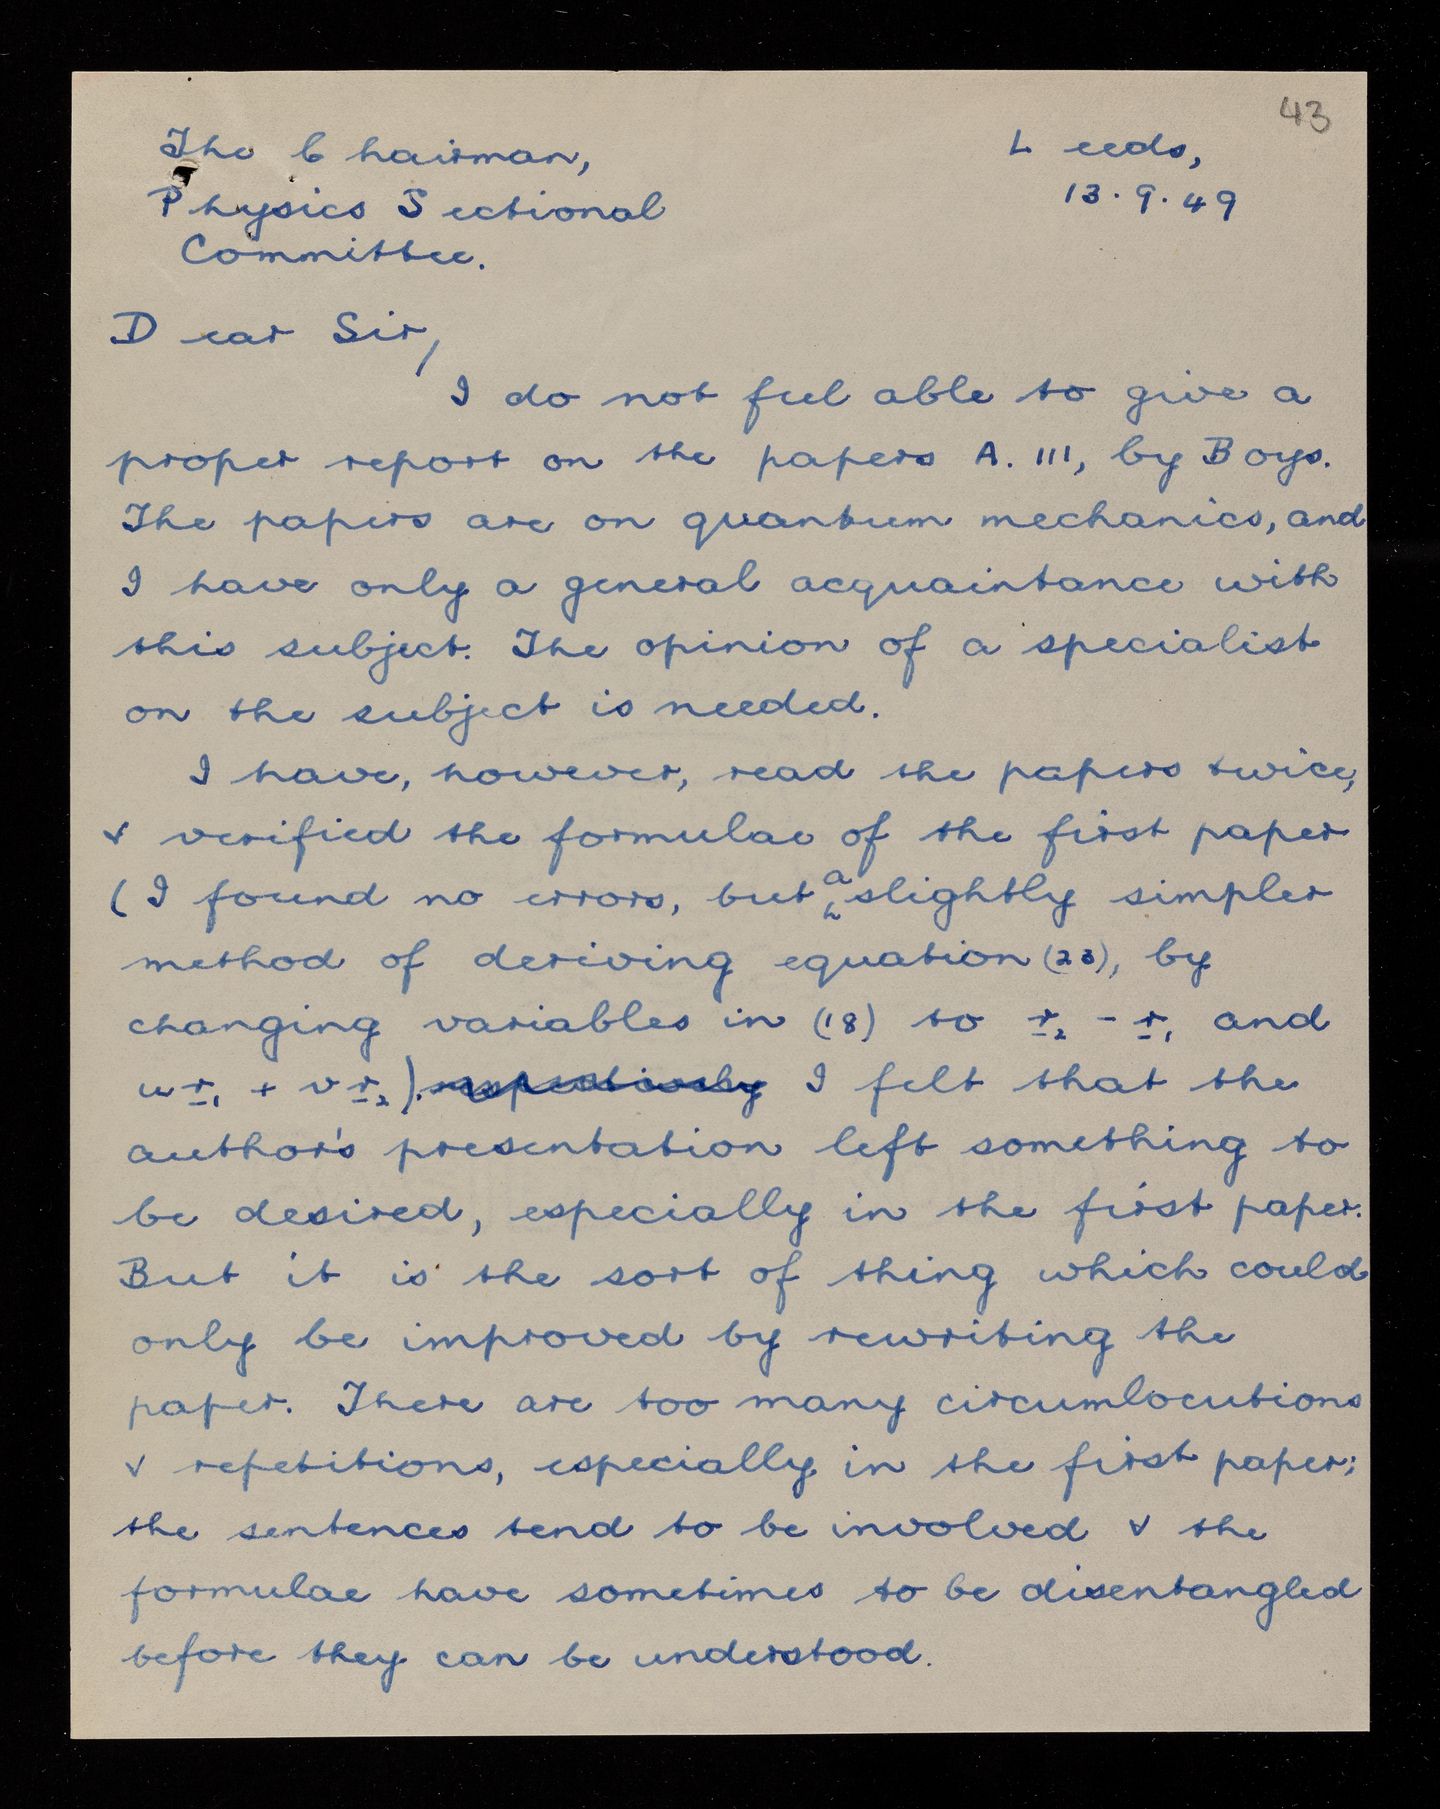 43
The Chairman,
Leeds,
Physics Sectional
13.9.49
Committee.
Dear Sir,
I do not feel able to give a
proper report on the papers A. 111, by Boys.
The papers are on quantum mechanics, and
I have only a general acquaintance with
this subject. The opinion of a specialist
on the subject is needed.
I have, however, read the papers twice,
& verified the formulae of the first paper
(I found no errors, but a slightly simpler
method of deriving equation (23), by
changing variables in (18) to r₂ - r₁ and
ur₁ + vr₂). respectively I felt that the
author's presentation left something to
be desired, especially in the first paper.
But it is the sort of thing which could
only be improved by rewriting the
paper. There are too many circumlocutions
& repetitions, especially in the first paper;
the sentences tend to be involved & the
formulae have sometimes to be disentangled
before they can be understood.